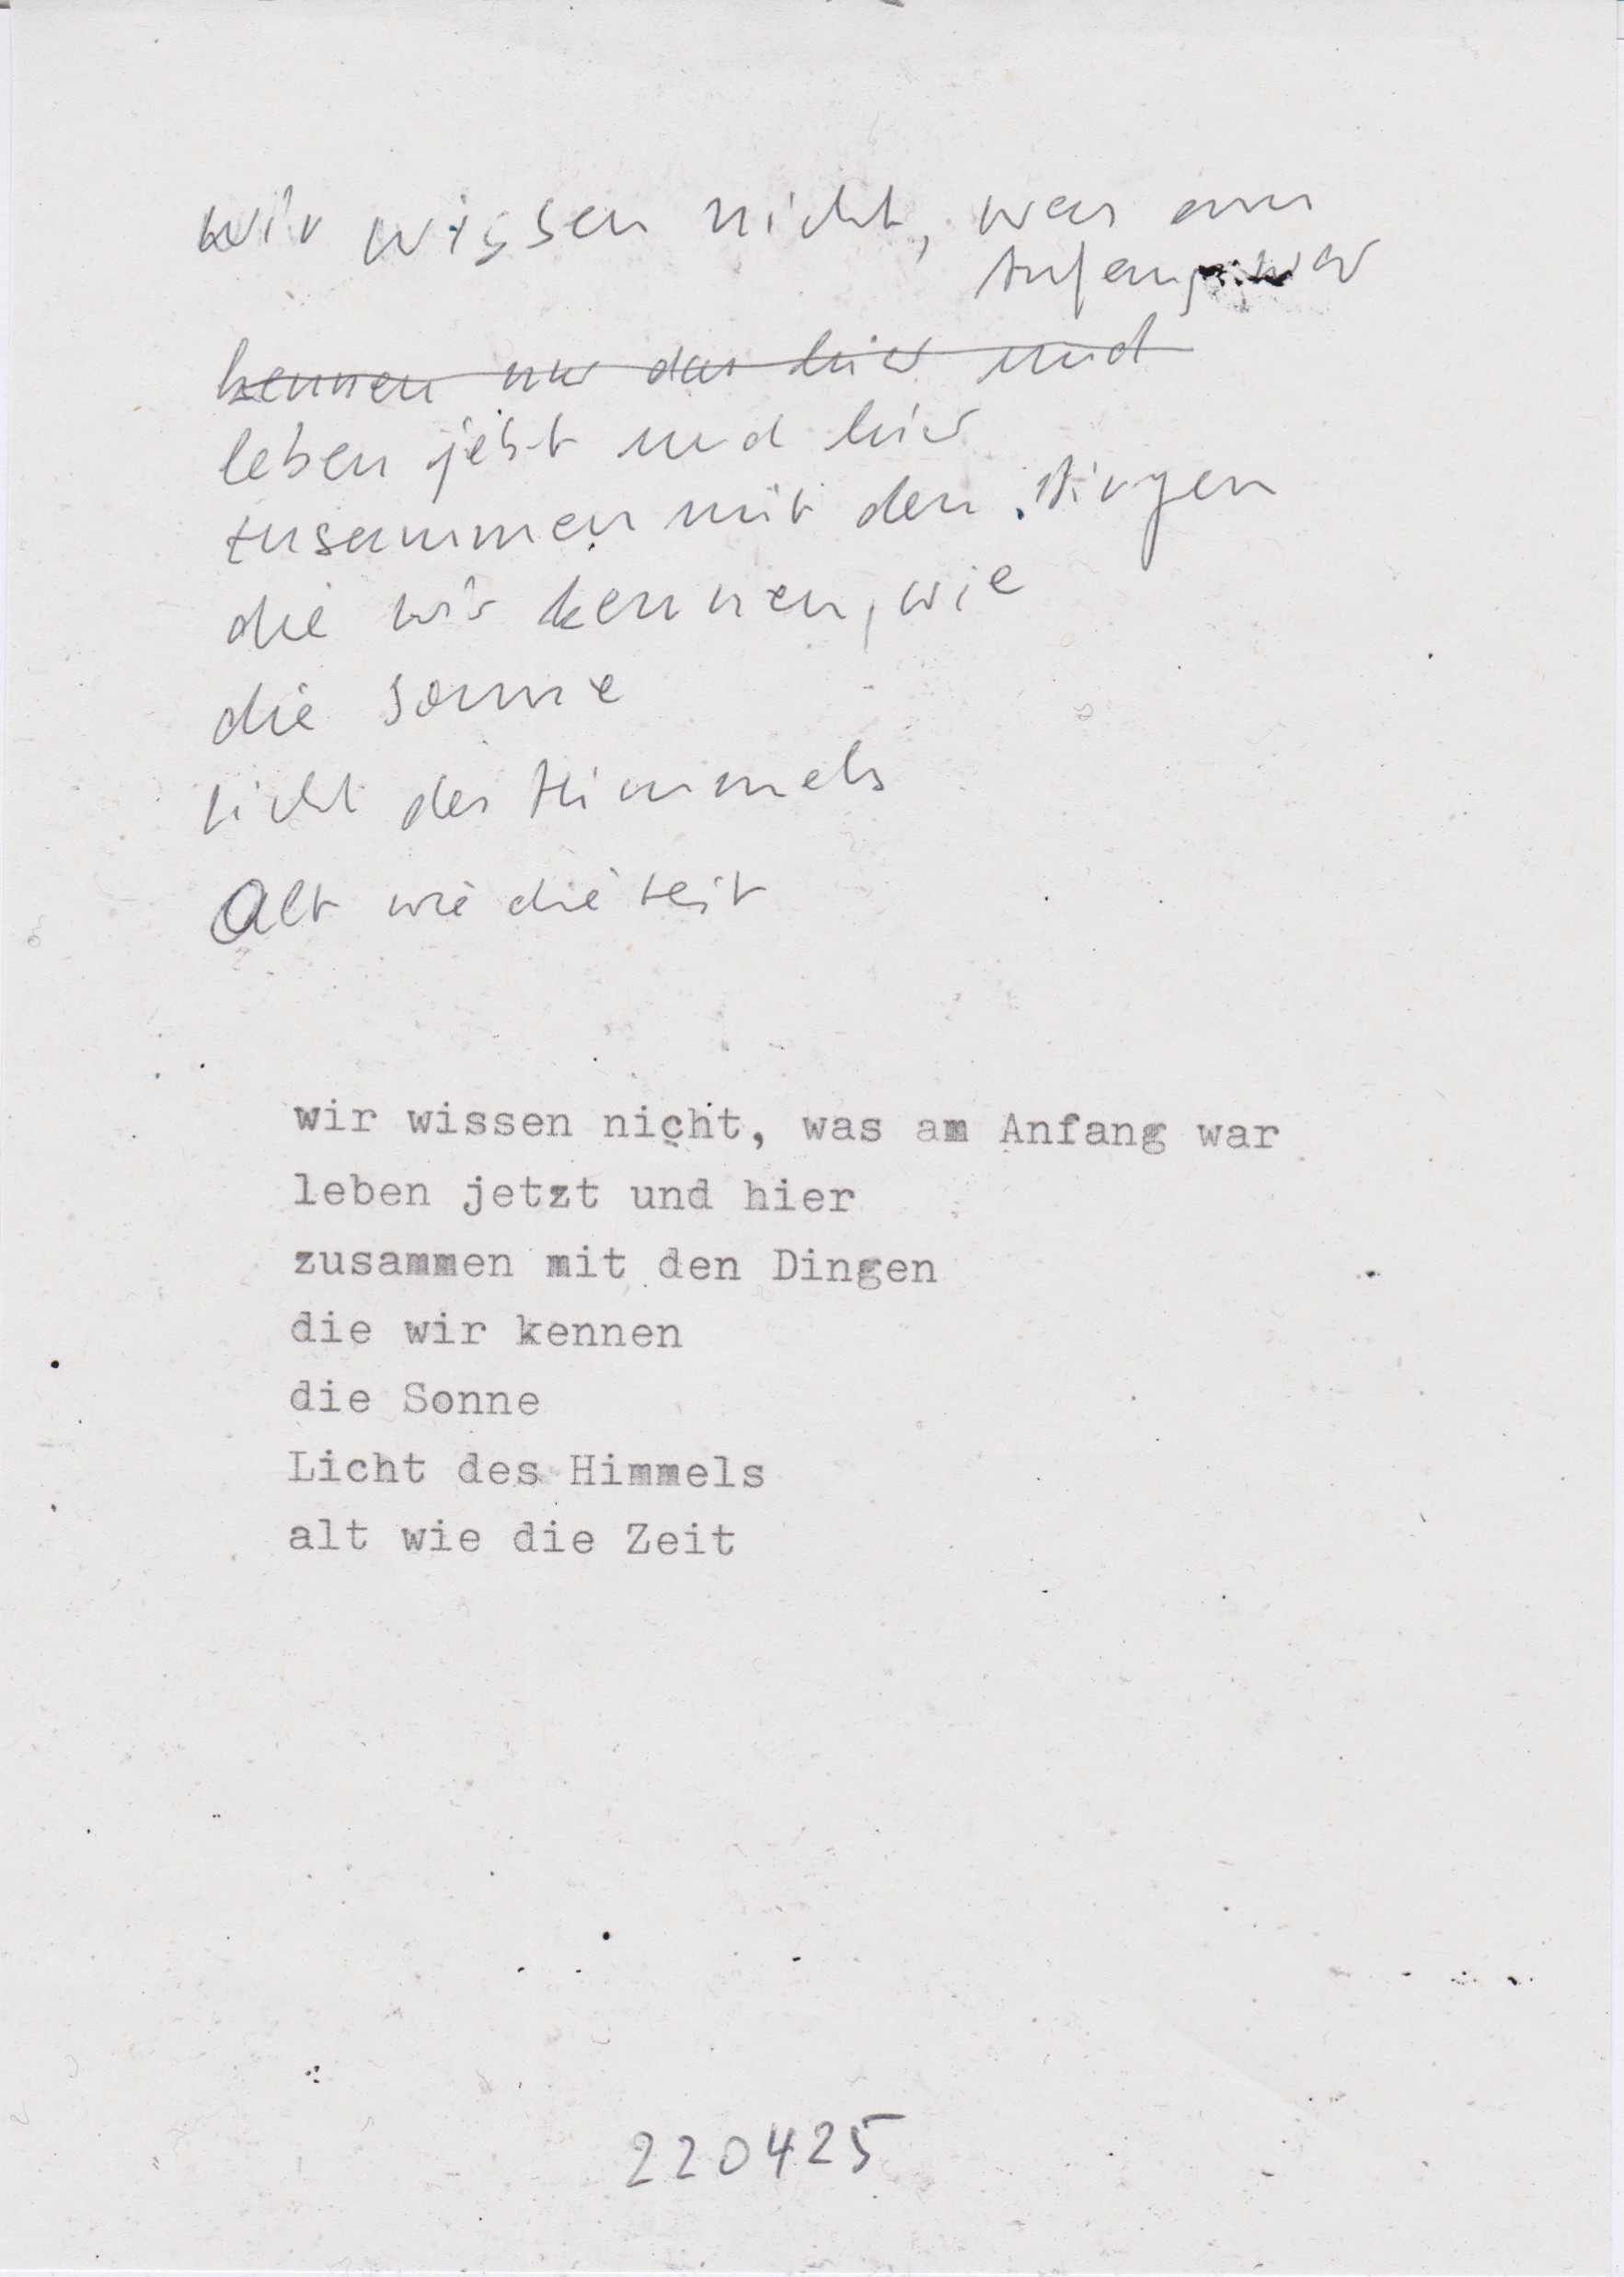 wir wissen nicht, was am
Anfang war
kennen nur das hier und
leben jetzt und hier
zusammen mit den Dingen
die wir kennen, wie
die Sonne
Licht des Himmels
Alt wie die Zeit
wir wissen nicht, was am Anfang war
leben jetzt und hier
zusammen mit den Dingen
die wir kennen
die Sonne
Licht des Himmels
alt wie die Zeit
220425